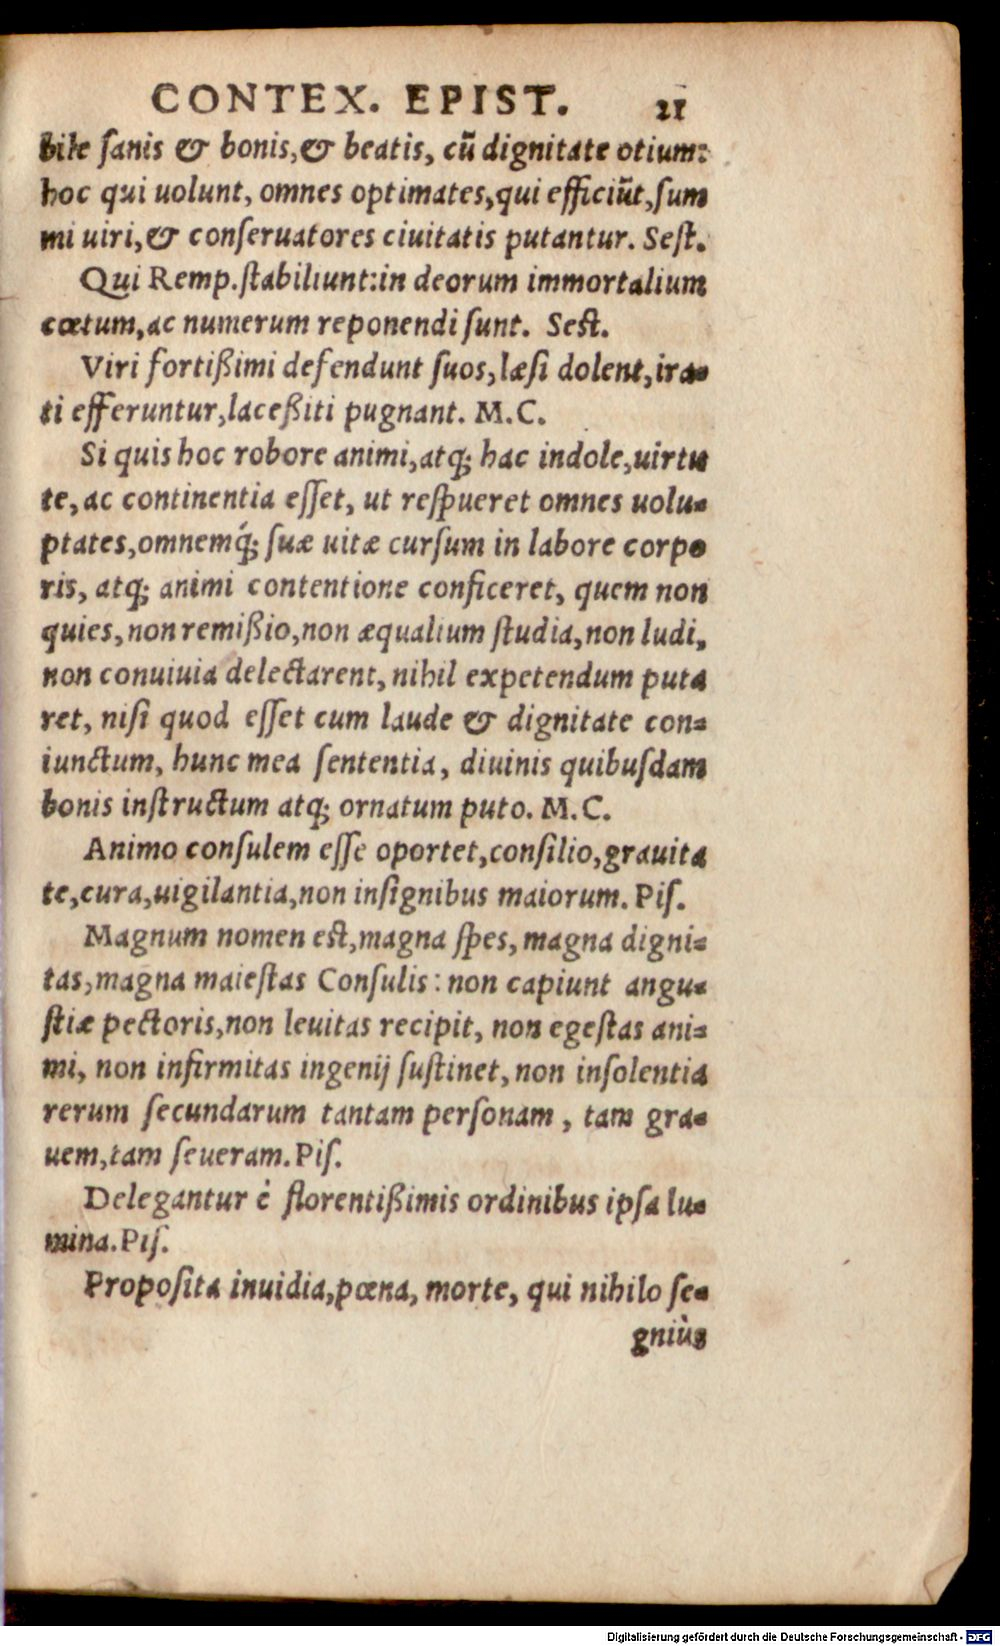 CONTEX. EPIST. 21
bile ſanis & bonis,& beatis, cũ dignitate otium:
hoc qui uolunt, omnes optimates,qui efficiũt,ſum
mi uiri,& conſeruatores ciuitatis putantur. Seſt.
Qui Remp.ſtabiliunt:in deorum immortalium
cœtum,ac numerum reponendi ſunt. Seſt.
Viri fortißimi defendunt ſuos,læſi dolent,ira-
ti efferuntur,laceßiti pugnant. M.C.
Si quis hoc robore animi,atq; hac indole,uirtu
te, ac continentia eſſet, ut reſpueret omnes uolu-
ptates,omnemq́; ſuæ uitæ curſum in labore corpo
ris, atq; animi contentione conficeret, quem non
quies,non remißio,non æqualium ſtudia,non ludi,
non conuiuia delectarent,nihil expetendum puta
ret, niſi quod eſſet cum laude & dignitate con-
iunctum, hunc mea ſententia, diuinis quibuſdam
bonis inſtructum atq; ornatum puto. M.C.
Animo conſulem eſſe oportet,conſilio,grauita
te,cura,uigilantia,non inſignibus maiorum.Piſ.
Magnum nomen eſt,magna ſpes, magna digni-
tas,magna maieſtas Conſulis: non capiunt angu-
ſtiæ pectoris,non leuitas recipit, non egeſtas ani-
mi, non infirmitas ingenij ſuſtinet,non inſolentia
rerum ſecundarum tantam perſonam, tam gra-
uem,tam ſeueram.Piſ.
Delegantur è florentißimis ordinibus ipſa lu-
mina.Piſ.
Propoſita inuidia,pœna, morte, qui nihilo ſe-
gniùs
Digitalisierung gefördert durch die Deutsche Forschungsgemeinschaft - DFG